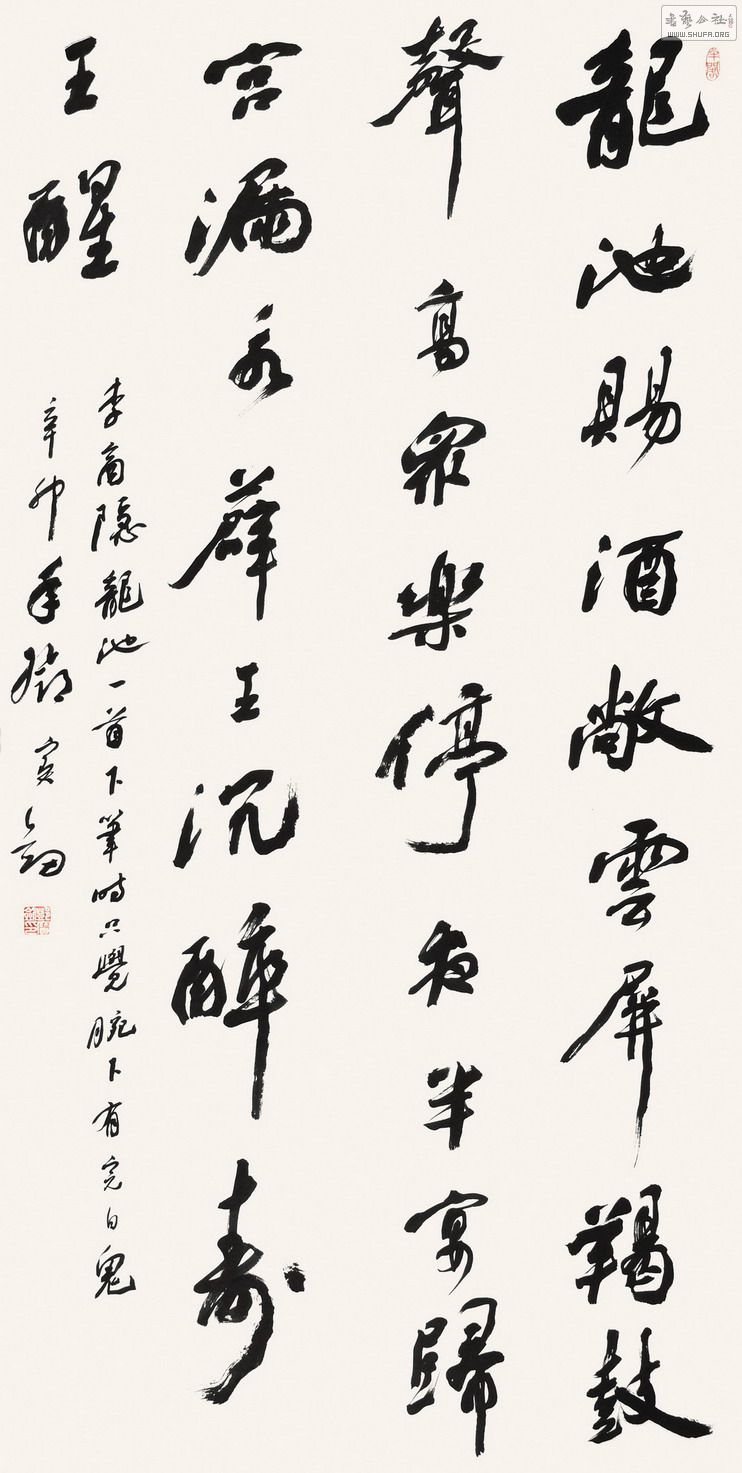 龍池賜酒敞雲屏羯鼓
聲高衆樂停夜半宴歸
宮漏永薛王沉醉壽
王醒
李商隱龍池一首下筆時只覺腕下有完白鬼
辛卯年鄧寶劍
書藝公社
WWW.SHUFA.ORG